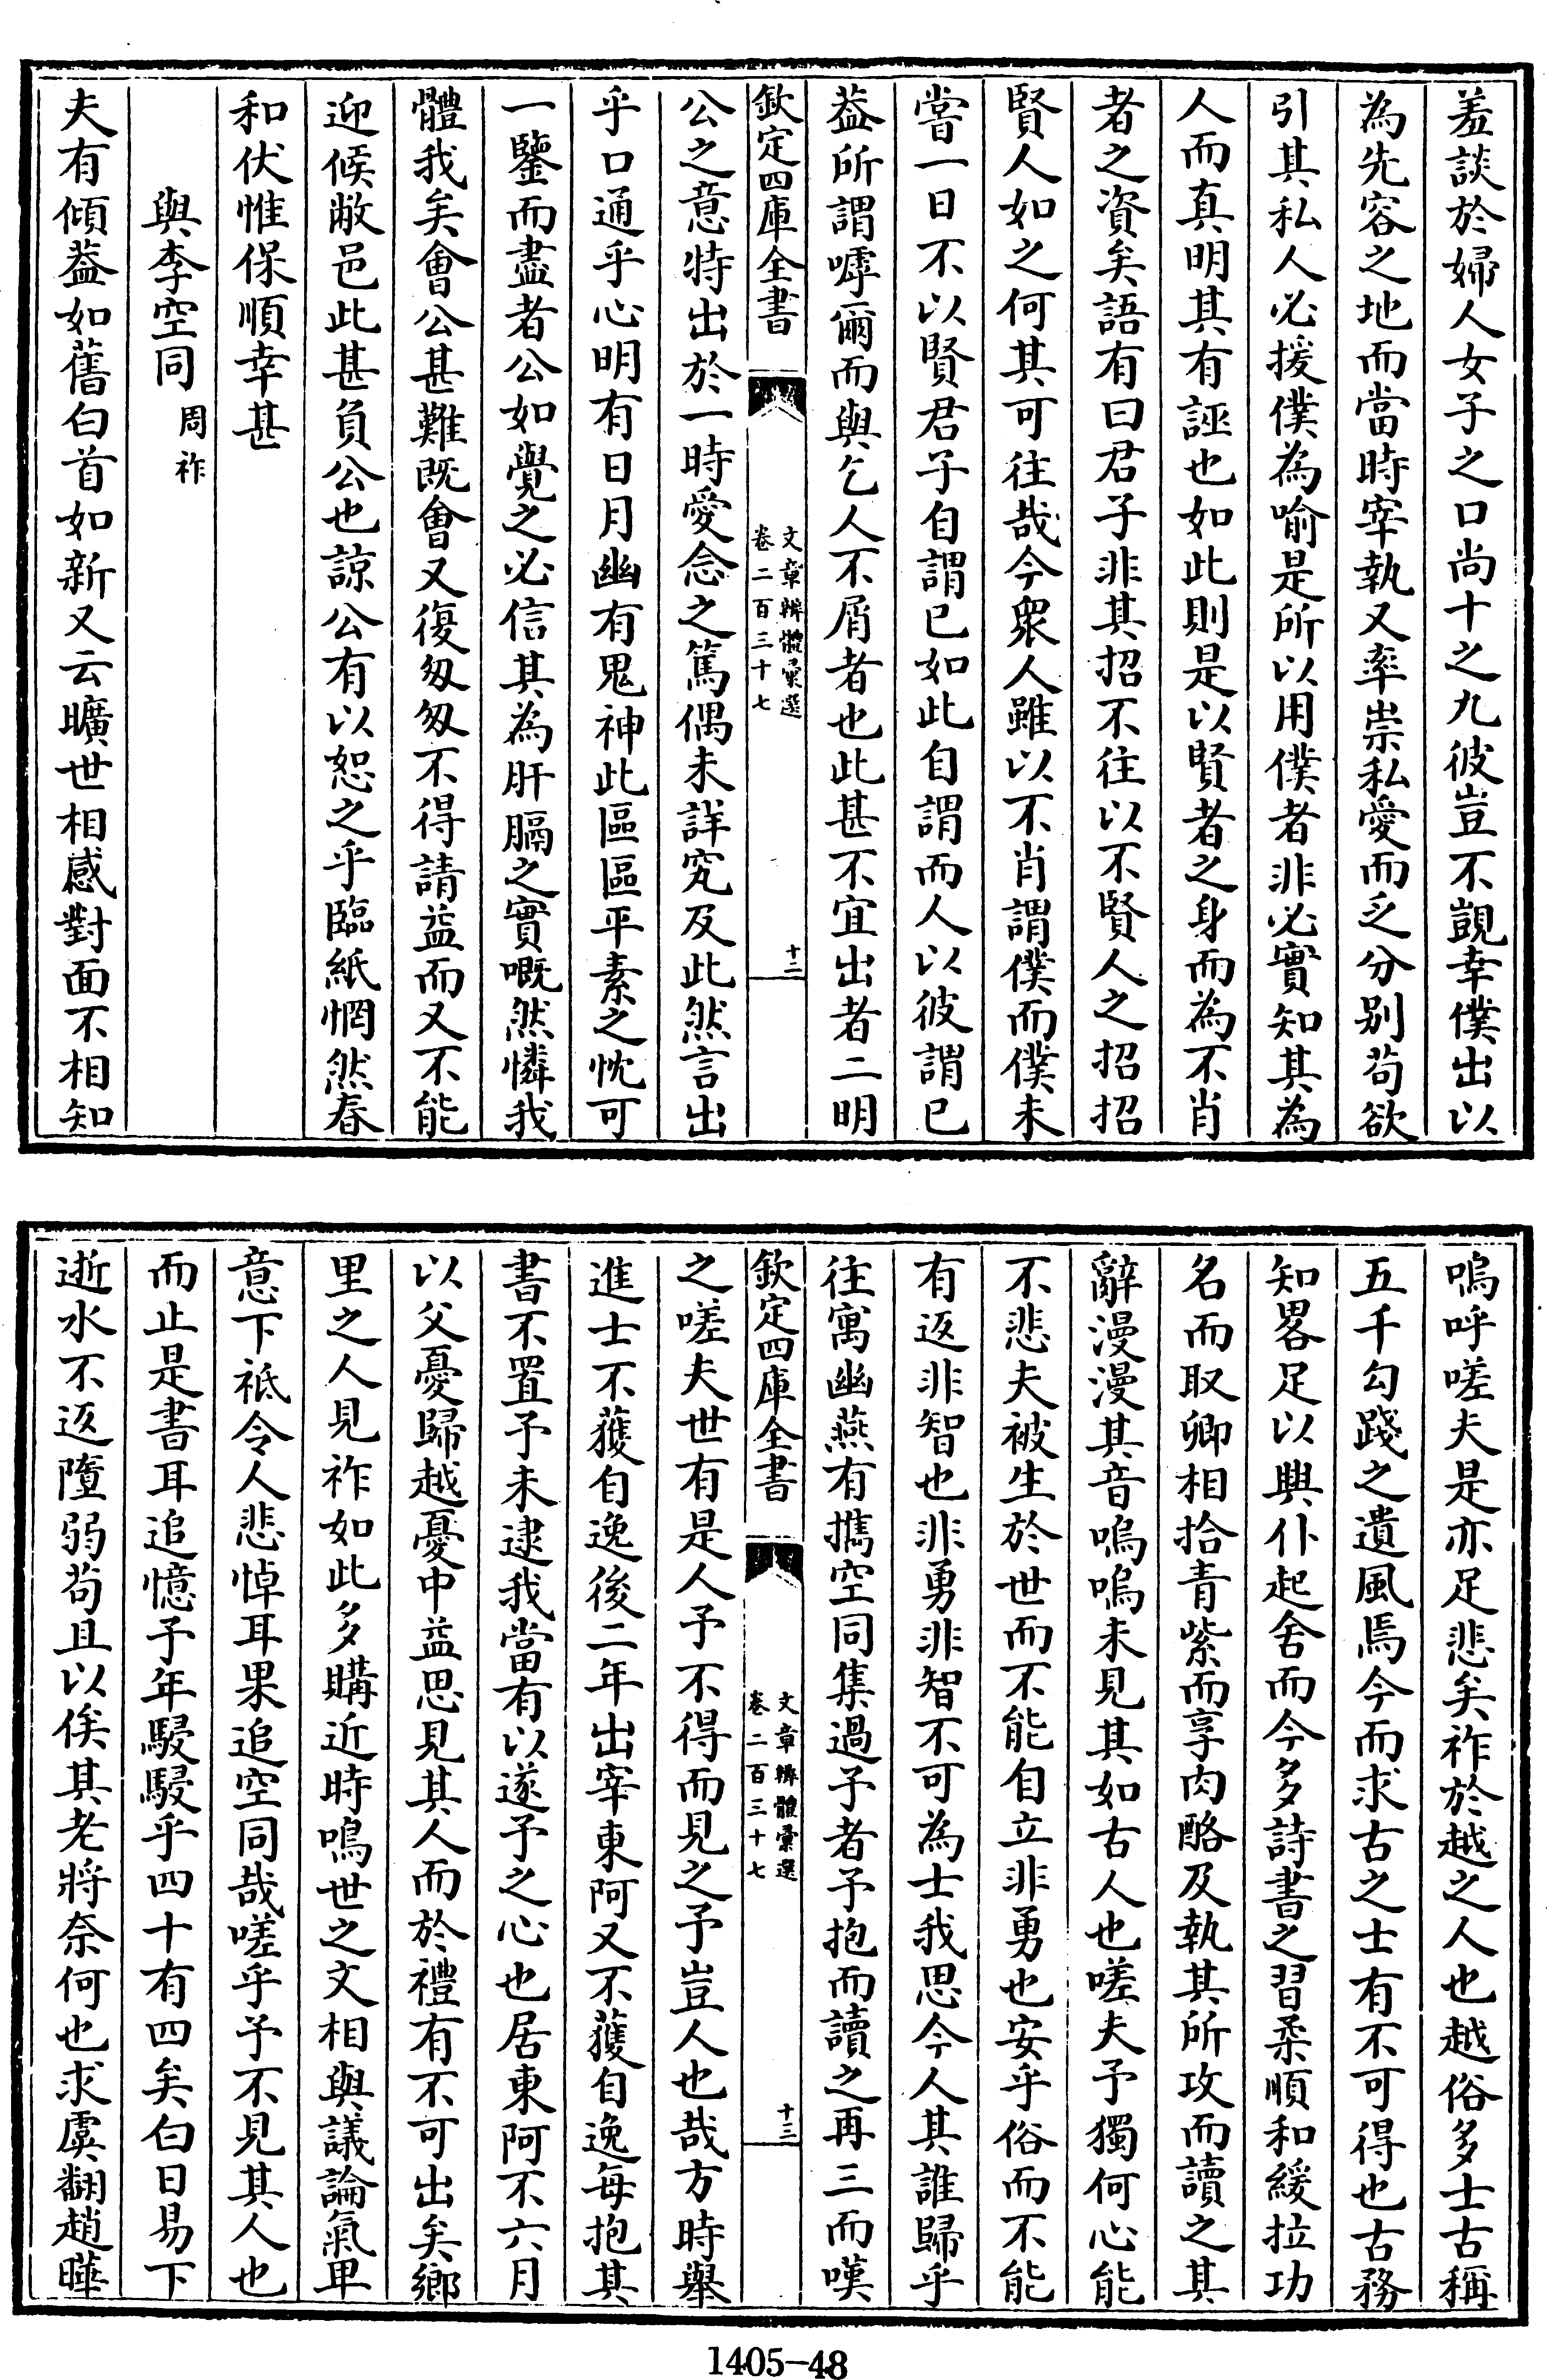 羞談於婦人女子之口尚十之九彼豈不覬幸僕出以
為先容之地而當時宰執又率崇私愛而乏分别苟欲
引其私人必援僕為喻是所以用僕者非必實知其為
人而真明其有誣也如此則是以賢者之身而為不肖
者之資矣語有曰君子非其招不往以不賢人之招招
賢人如之何其可往哉今衆人雖以不肖謂僕而僕未
嘗一日不以賢君子自謂已如此自謂而人以彼謂已
葢所謂嘑爾而與乞人不屑者也此甚不宜出者二明
欽定四庫全書
文章辨體彙選
卷二百三十七
十二
公之意特出於一時愛念之篤偶未詳究及此然言出
乎口通乎心明有日月幽有鬼神此區區平素之忱可
一鑒而盡者公如覺之必信其為肝膈之實嘅然憐我
體我矣會公甚難既會又復匆匆不得請益而又不能
迎候敝邑此甚負公也諒公有以恕之乎臨紙惘然春
和伏惟保順幸甚
與李空同 周祚
夫有傾葢如舊白首如新又云曠世相感對面不相知
嗚呼嗟夫是亦足悲矣祚於越之人也越俗多士古稱
五千勾踐之遺風焉今而求古之士有不可得也古務
知畧足以興仆起舍而今多詩書之習柔順和緩拉功
名而取卿相拾青紫而享肉酪及執其所攻而讀之其
辭漫漫其音嗚嗚未見其如古人也嗟夫予獨何心能
不悲夫被生於世而不能自立非勇也安乎俗而不能
有返非智也非勇非智不可為士我思今人其誰歸乎
往寓幽燕有攜空同集過予者予抱而讀之再三而嘆
欽定四庫全書
文章辨體彙選
卷二百三十七
十三
之嗟夫世有是人予不得而見之予豈人也哉方時舉
進士不獲自逸後二年出宰東阿又不獲自逸每抱其
書不置予未逮我當有以遂予之心也居東阿不六月
以父憂歸越憂中益思見其人而於禮有不可出矣鄉
里之人見祚如此多購近時鳴世之文相與議論氣卑
意下祗令人悲悼耳果追空同哉嗟乎予不見其人也
而止是書耳追憶予年駸駸乎四十有四矣白日易下
逝水不返墮弱苟且以俟其老將奈何也求虞翻趙曄
1405-48